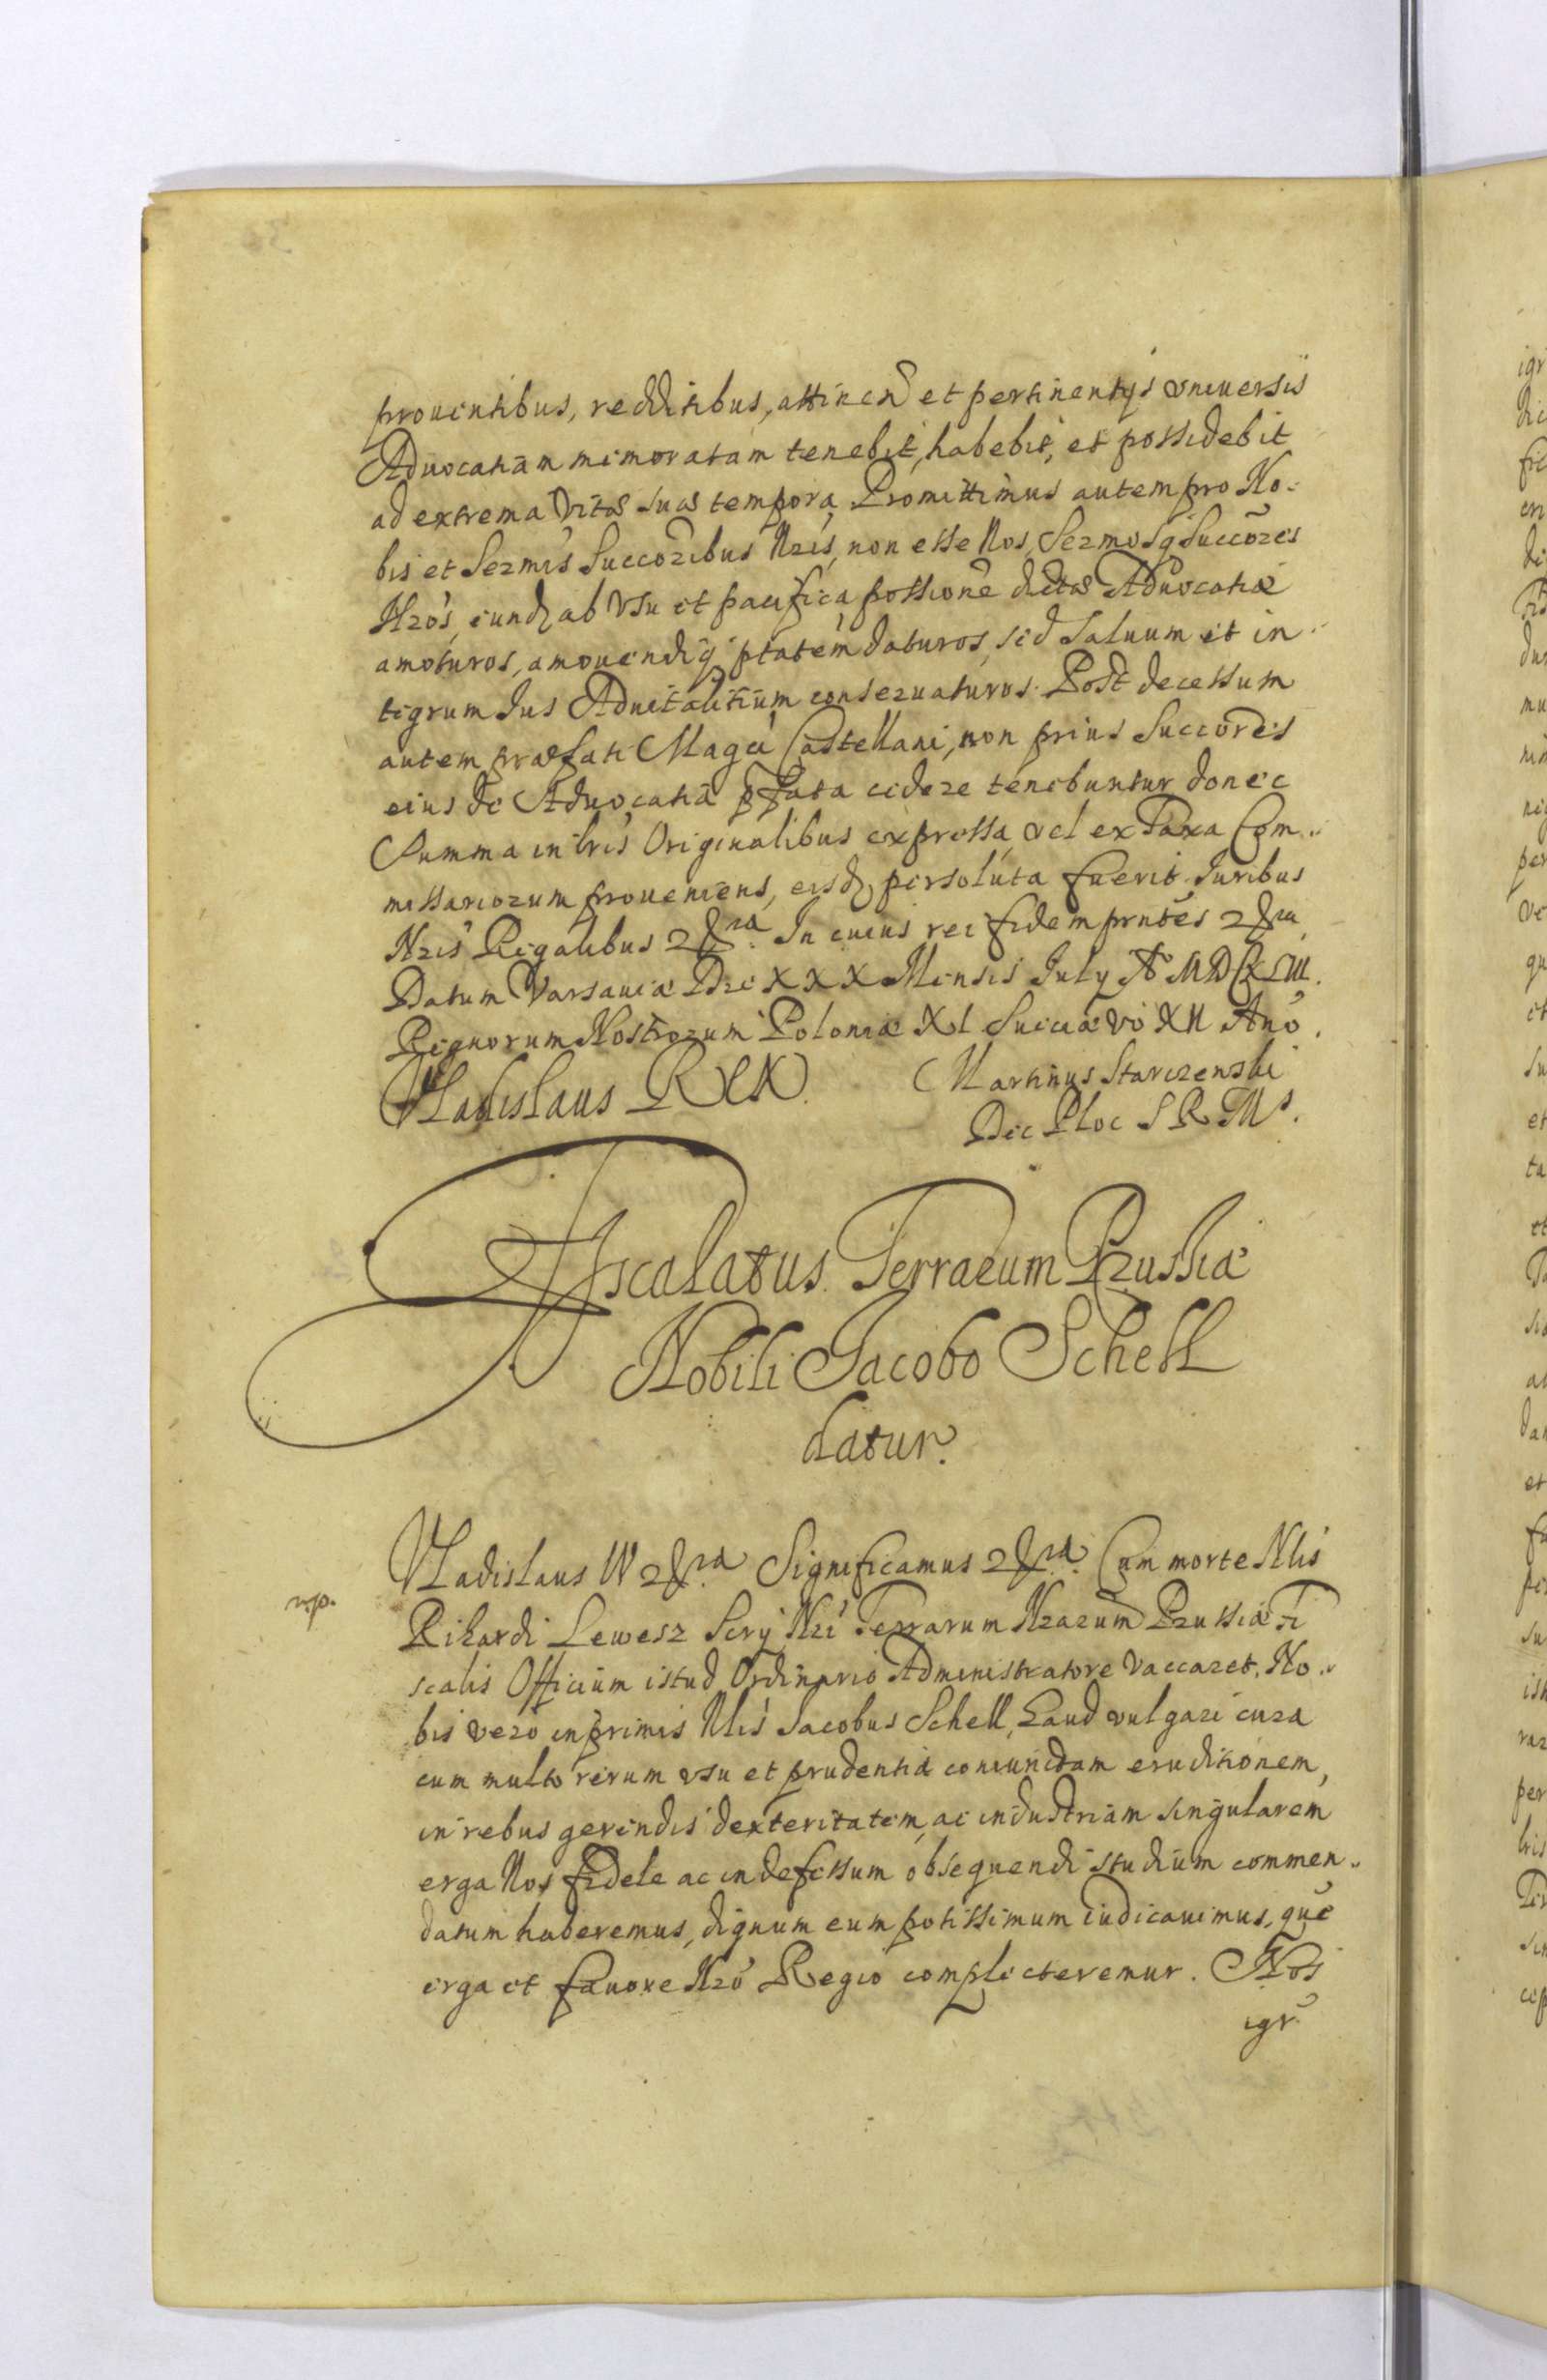 prouentibus, redditibus, attinen et pertinentijs vniuersis
Aduocatiam memoratam tenebit, habebit, et possidebit
ad extrema vitæ suæ tempora, Promittimus autem pro No-
bis et Sermis Succoribus Nris, non esse Nos, Sermosq Succores
Nros, eundq ab vsu et pacifica possione dictæ Aduocatiæ
amoturos, amouendiq ptatem daturos, sed saluum et in-
tegrum Jus Aduitalitium conseruaturos. Post decessum
autem præfati Magci Castellani, non prius Succores
eius de Aduocatia pfata cedere tenebuntur donec
Summa in lris Originalibus expressa, vel ex Taxa Com-
missariorum proueniens, eisdq persoluta fuerit. Juribus
Nris Regalibus In cuius rei fidem prntes
Datum Varsauiæ Die XXX Mensis July Ao MDCXLIII.
Regnorum Nostrorum Poloniæ XI Sueciæ vo XII Ano.
Vladislaus Rex. Martinus Starczenski
Dec Ploc S R Ms.
Fiscalatus Terrarum Prussiæ
Nobili Jacobo Schell
datur.
Vladislaus IV Significamus Cum morte Nlis
Rikardi Lewesz Scrij Nri Terrarum Nrarum Prussiæ Fi
scalis Officium istud Ordinario Administratore vaccaret. No-
bis vero inprimis Nlis Jacobus Schell, haud vulgari cura
cum multo rerum vsu et prudentia coniunctam eruditionem,
in rebus gerendis dexteritatem, ac industriam singularem
erga Nos fidele ac indefessum obsequendi studium commen-
datum haberemus, dignum eum potissimum iudicauimus, que
erga et fauore Nro Regio complecteremur. Nos
igr